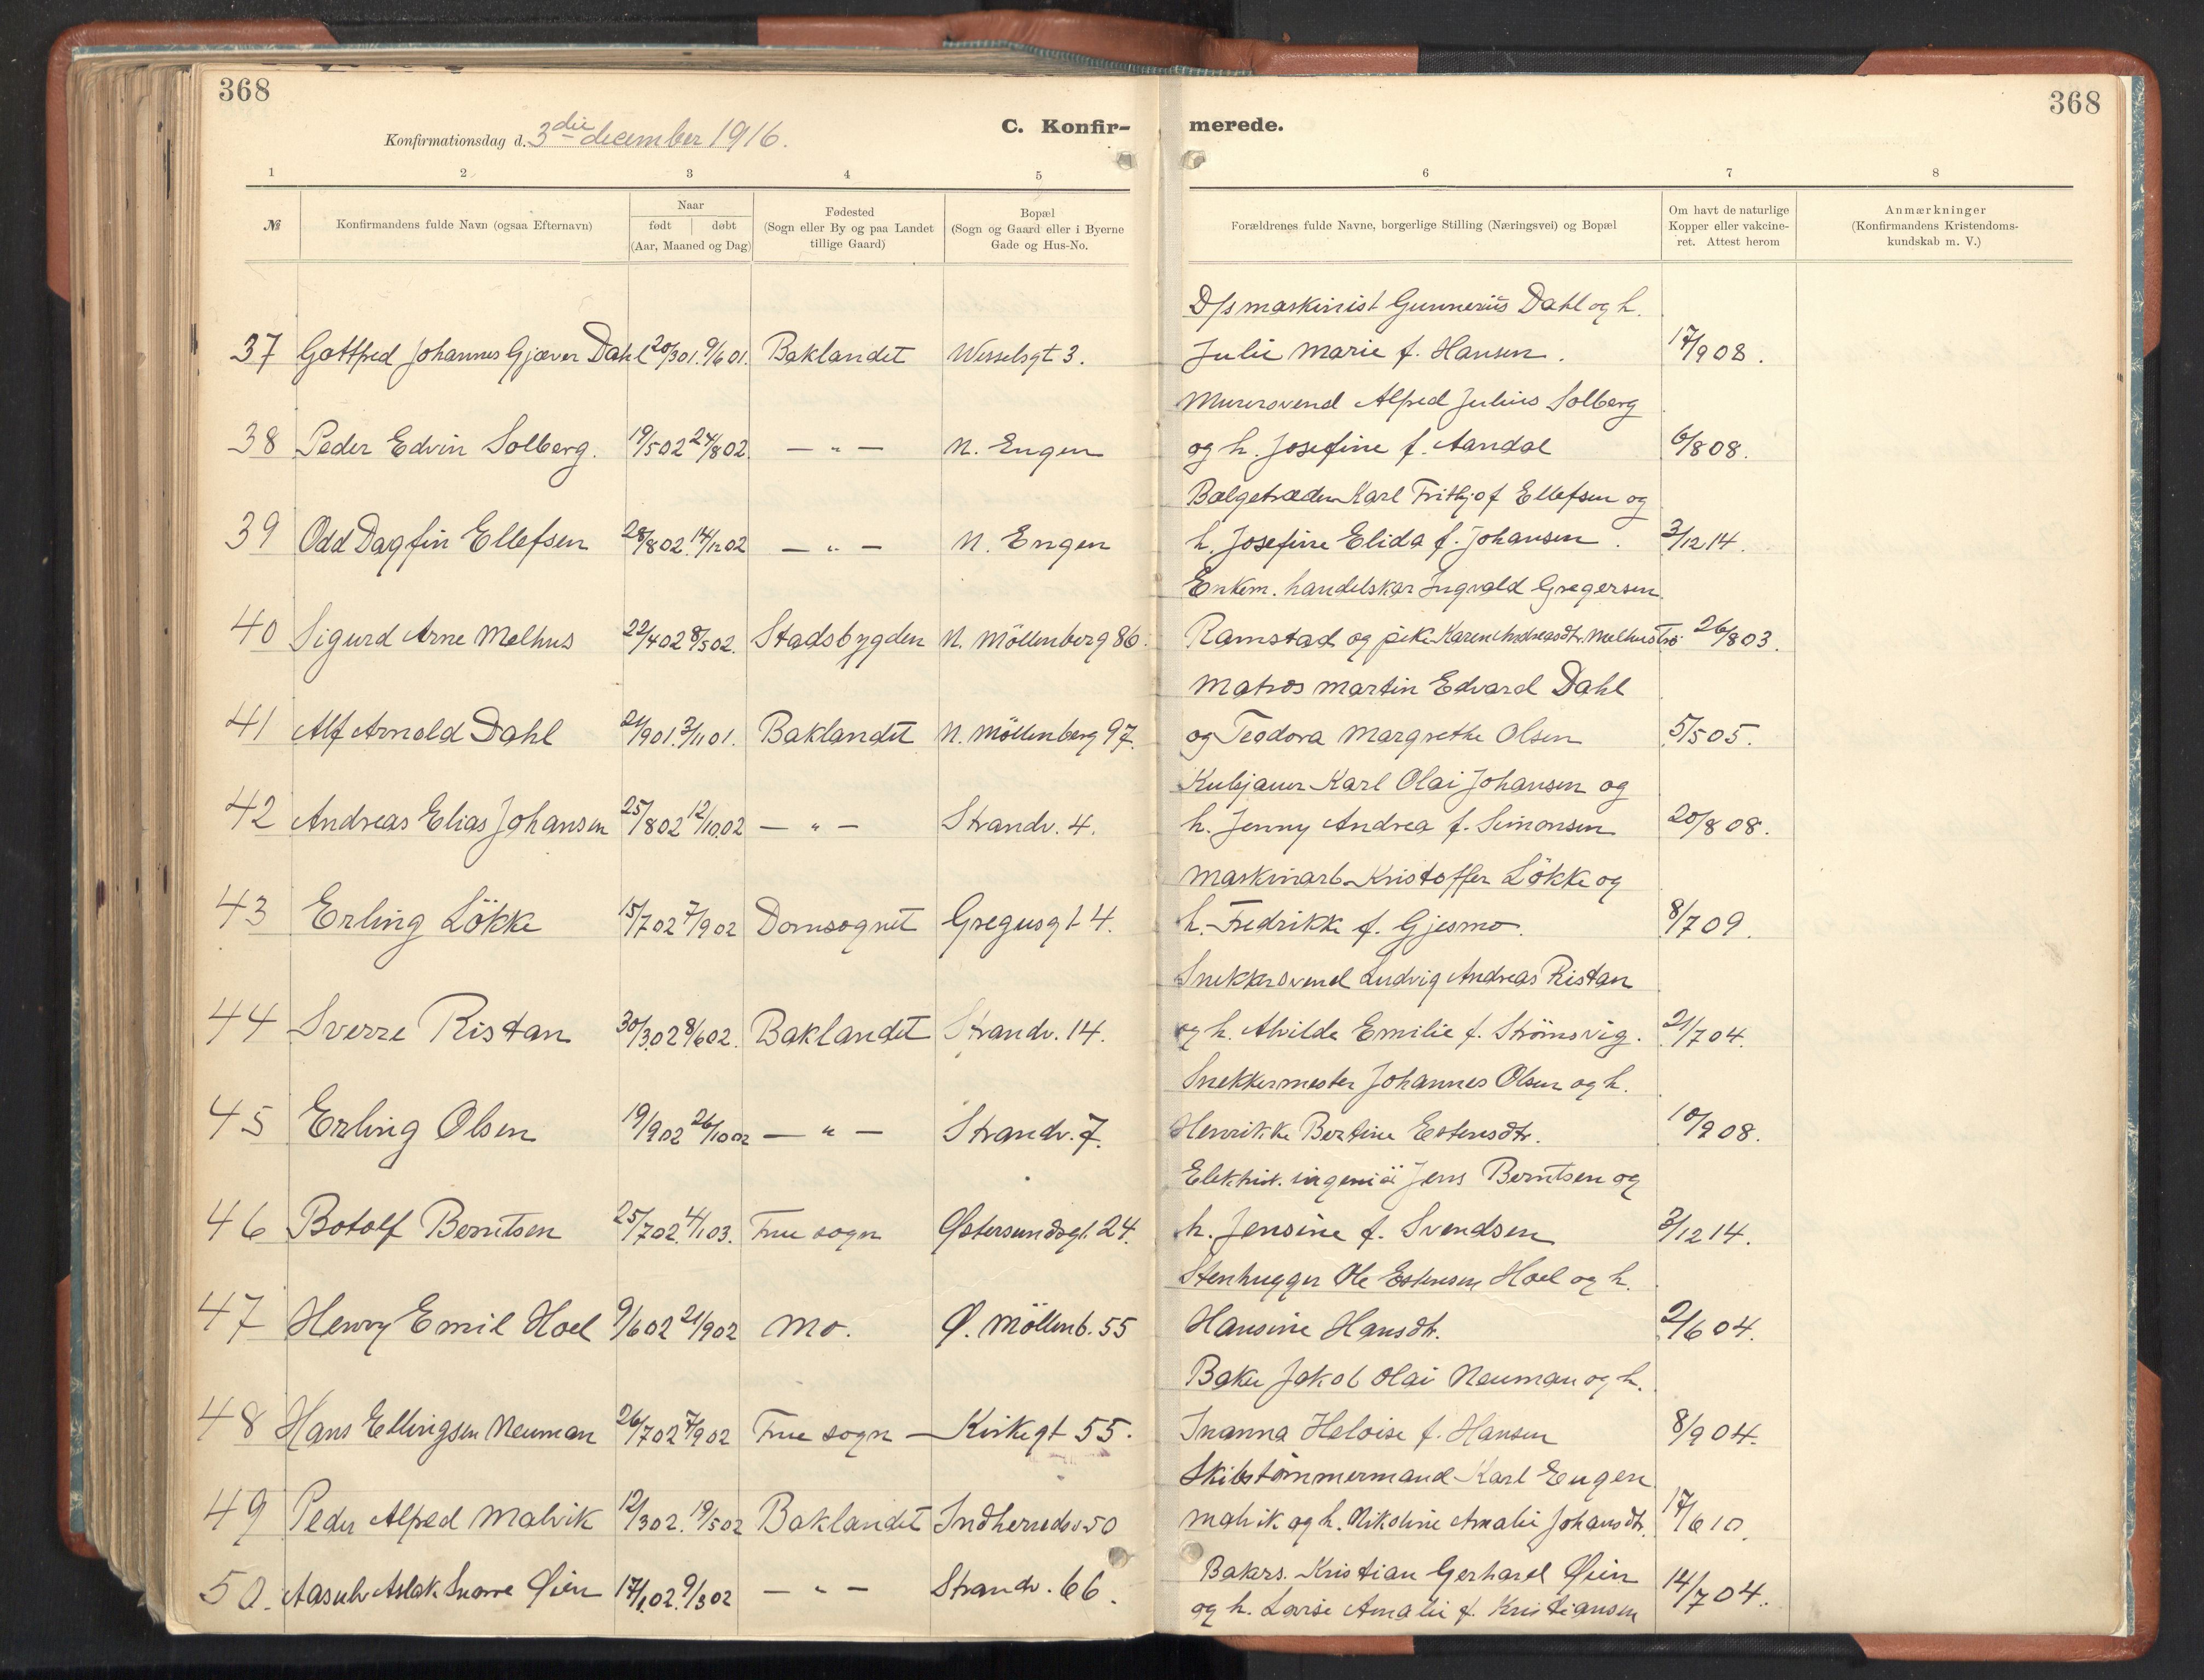 368
368
Konfirmationsdag d. 3die december 1916.
C. Konfir-
merede.
1 2 3 4 5 6 7 8
№ Konfirmandens fulde Navn (ogsaa Efternavn) Naar født døbt (Aar, Maaned og Dag) Fødested (Sogn eller By og paa Landet tillige Gaard) Bopæl (Sogn og Gaard eller i Byerne Gade og Hus-No. Forældrenes fulde Navne, borgerlige Stilling (Næringsvei) og Bopæl Om havt de naturlige Kopper eller vakcineret. Attest herom Anmærkninger (Konfirmandens Kristendomskundskab m. V.)
D/s maskinist Gunnerius Dahl og h.
37 Gottfred Johannes Gjæver Dahl 20/3 01. 9/6 01. Baklandet Wesselsgt 3. Julie Marie f. Hansen. 17/9 08.
Murersvend Alfred Julius Solberg
38 Peder Edvin Solberg. 19/5 02 24/8 02. — " — N. Engen og h. Josefine f. Aandal 6/8 08.
Bælgetræder Karl Fritjof Ellefsen og
39 Odd Dagfin Ellefsen 28/8 02. 14/12 02 — " — N. Engen h. Josefine Elida f. Johansen. 3/12 14.
Enkem. handelskar Ingvald Gregersen
40 Sigurd Arne Melhus 22/4 02 8/5 02. Stadsbygden N. Möllenberg 86. Ramstad og pike Karen Andreasdtr. Melhustrø 26/8 03.
Matros Martin Edvard Dahl
41 Alf Arnold Dahl 21/9 01. 3/11 01. Baklandet N. Möllenberg 97. og Teodora Margrethe Olsen 5/5 05.
Kuskjører Karl Olai Johansen og
42 Andreas Elias Johansen 25/8 02 12/10 02 — " — Strandv. 4. h. Jenny Andrea f. Simonsen 20/8 08.
Maskinarb. Kristoffer Lökke og
43 Erling Lökke 15/7 02 7/9 02 Domsognet Gregusgt 4. h. Fredrikke f. Gjesmo. 8/7 09.
Snekkersvend Ludvig Andreas Ristan
44 Sverre Ristan 30/3 02 8/6 02. Baklandet Strandv. 14. og h. Alvilde Emilie f. Strömsvig. 21/7 04.
Snekkermester Johannes Olsen og h.
45 Erling Olsen 19/9 02 26/10 02 — " — Strandv. 7. Henrikke Bertine Estensdtr. 10/9 08.
Elektrik. ingeniö Jens Berntsen og
46 Botolf Berntsen 25/7 02. 4/1 03. Frue sogn Østersundsgt. 24. h. Jensine f. Svendsen 3/12 14.
Stenhugger Ole Estensen Hoel og h.
47 Henry Emil Hoel 9/6 02 21/9 02 Mo. Ø. Möllenb. 55 Hansine Hansdtr. 2/6 04.
Baker Jakob Olai Neuman og h.
48 Hans Ellingsen Neuman 26/7 02 7/9 02 Frue sogn — Kirkegt 55. Inanna Heloise f. Hansen 8/9 04.
Skibstömmermand Karl Eugen
49 Peder Alfred Malvik 12/3 02. 19/5 02 Baklandet Indherredsv 50 Malvik og h. Nikoline Amalie Johansdtr. 17/6 10.
Bakers. Kristian Gerhard Øien
50. Aasulv Aslak Snorre Øien 17/1 02. 9/3 02 — " — Strandv. 66. 14/7 04.
og h. Lovise Amalie f. Kristiansen